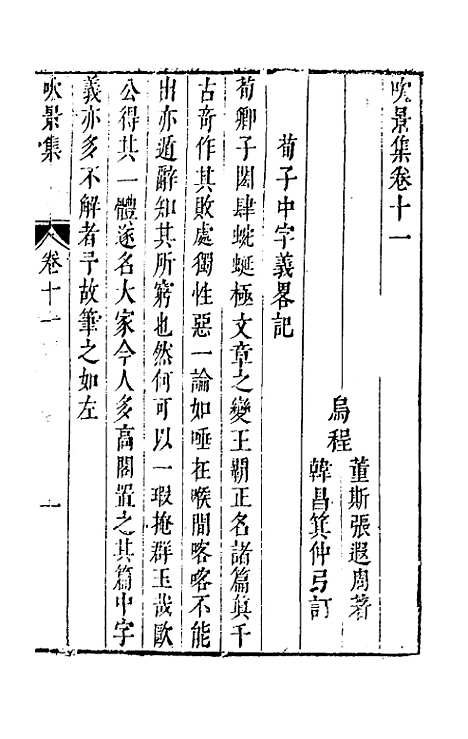 吹景集卷十一
烏程
董斯張遐周著
韓昌箕仲弓訂
荀子中字義畧記
荀卿子閎肆蜿蜒極文章之變王覇正名諸篇真千
古奇作其敗處獨性惡一論如唾在喉間喀喀不能
出亦遁辭知其所窮也然何可以一瑕掩群玉哉歐
公得其一體遂名大家今人多高閣置之其篇中字
義亦多不解者予故筆之如左
吹景集
卷十一
一